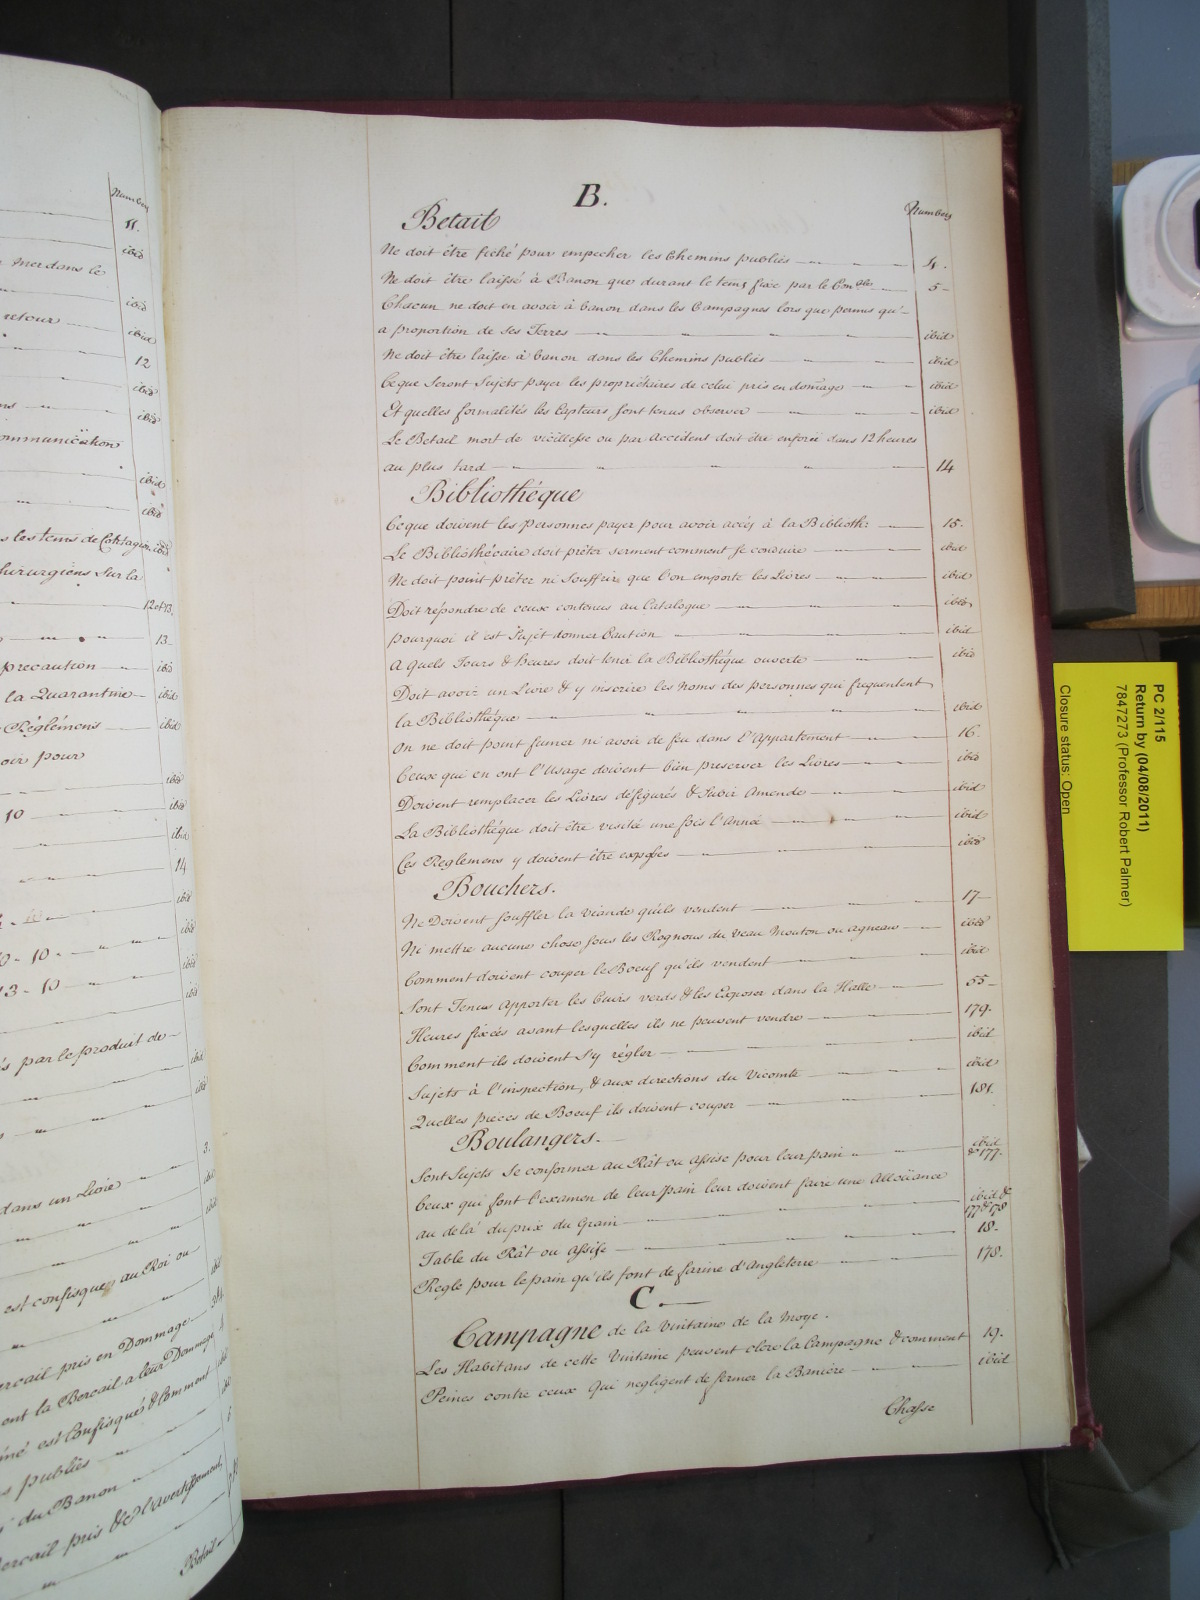 Numbers
11.
ibid
Mer dans le
ibid
retour
ibid
12
ibid
ibid
ommunication
ibid
ibid
s les tems de Contagion ibid
hirurgiens sur la
12 et 13.
13
precaution ibid
la Quarantine ibid
Réglémens ibid
oir pour
ibid
10 ibid
ibid
14
ibid
0 - 10 - ibid
13 - 10 ibid
ibid
és par le produit de
ibid
ibid
3.
dans un Livre ibid
ibid
est confisque au Roi ou
ibid
ercail pris en Dommage
ent la Bercail a leur Dommage
iné est Confisqué & Comment
s publiés
du Banon
ercail pris & d'avertissement
Betail
B.
Numbers
Betail
Ne doit être fiché pour empecher les Chemins publiés 4.
Ne doit être laissé à Banon que durant le tems fixe par le Con ables 5
Chacun ne doit en avoir à banon dans les Campagnes lors que permis qu'
a proportion de ses Terres ibid
Ne doit être laisse à banon dans les Chemins publiés ibid
Ce que seront Sujets payer les propriétaires de celui pris en domage ibid
Et quelles formalités les Capteurs sont tenus observer ibid
Le Betail mort de vieillesse ou par accident doit être enforié dans 12 heures
au plus tard 14
Bibliothéque
Ce que doivent les personnes payer pour avoir accés à la Biblioth: 15.
Le Bibliothécaire doit préter serment comment se conduire ibid
Ne doit point préter ni Souffrir que l'on emporte les Livres ibid
Doit repondre de ceux contenus au Catalogue ibid
pourquoi il est Sujet donner Caution ibid
A quels Jours & heures doit tenir la Bibliothéque ouverte ibid
Doit avoir un Livre & y inscrire les Noms des personnes qui frequentent
la Bibliothéque ibid
On ne doit point fumer ni avoir de feu dans l'Appartement 16.
Ceux qui en ont l'Usage doivent bien preserver les Livres ibid
Doivent remplacer les Livres défigurés & Subir Amende ibid
La Bibliothéque doit être visité une fois l'Année ibid
Ces Reglemens y doivent être exposés ibid
Bouchers.
Ne Doivent souffler la viande qu'ils vendent 17
Ni mettre aucune chose sous les Rognons du Veau Mouton ou agneau ibid
Comment doivent couper le Boeuf qu'ils vendent ibid
Sont Tenus apporter les Cuirs verds & les Exposer dans la Halle 55
Heures fixés avant lesquelles ils ne peuvent vendre 179.
Comment ils doivent s'y régler ibid
Sujets à l'inspection, & aux directions du Vicomte ibid
Quelles pieces de Boeuf ils doivent couper 181.
Boulangers.
Sont Sujets Se conformer au Rât ou Assise pour leur pain ibid & 177.
Ceux qui font l'examen de leur pain leur doivent faire une Alloüance
au delà du prix du Grain ibid & 177 & 178
Table du Rât ou Assise 18
Regle pour le pain qu'ils font de farine d'Angleterre 178.
C.
Campagne de la Vintaine de la Moye.
Les Habitans de cette Vintaine peuvent clore la Campagne & comment 19.
Peines contre ceux Qui negligent de fermer la Baniére ibid
Chasse
PC 2/115
Return by (04/08/2011)
7847273 (Professor Robert Palmer)
Closure status: Open